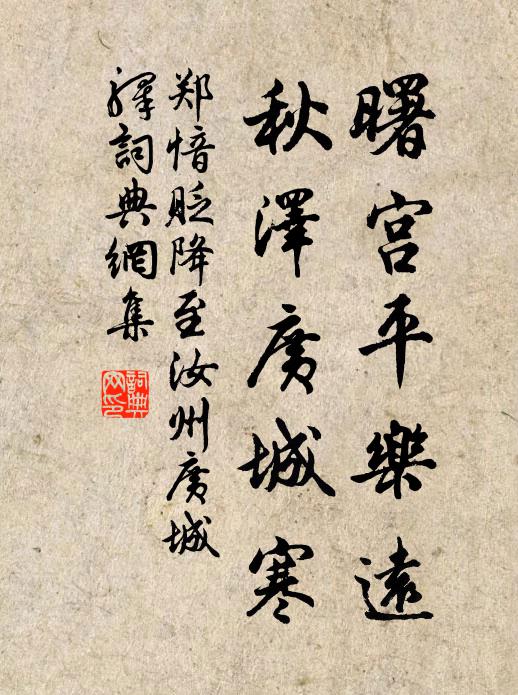 曙宫平樂遠
秋澤廣城寒
郑愔貶降至汝州廣城
驛詞典網集
詞典
网印